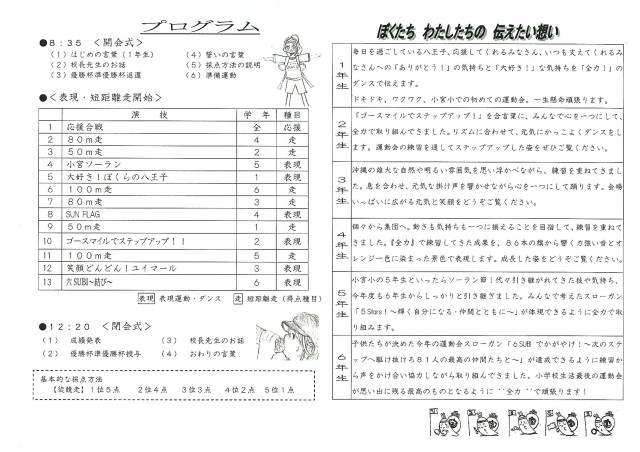 プログラム
●8:35 <開会式>
(1) はじめの言葉(1年生)
(2) 校長先生のお話
(3) 優勝杯準優勝杯返還
(4) 誓いの言葉
(5) 採点方法の説明
(6) 準備運動
●<表現・短距離走開始>
演 技 学 年 種目
1 応援合戦 全 応援
2 80m走 4 走
3 50m走 2 走
4 小宮ソーラン 5 表現
5 大好き!ぼくらの八王子 1 表現
6 100m走 6 走
7 80m走 3 走
8 SUN FLAG 4 表現
9 50m走 1 走
10 ゴースマイルでステップアップ!! 2 表現
11 100m走 5 走
12 笑顔どんどん!ユイマール 3 表現
13 六SUBI～結び～ 6 表現
表現 表現運動・ダンス 走 短距離走(得点種目)
●12:20 <閉会式>
(1) 成績発表
(2) 優勝杯準優勝杯授与
(3) 校長先生のお話
(4) おわりの言葉
基本的な採点方法
【徒競走】1位5点 2位4点 3位3点 4位2点 5位1点
ぼくたち わたしたちの 伝えたい想い
1年生
毎日を過ごしている八王子、応援してくれるみなさん、いつも支えてくれるみ
なさんへの「ありがとう!」の気持ちと「大好き!」な気持ちを「全力!」の
ダンスで伝えます。
ドキドキ、ワクワク、小宮小での初めての運動会。一生懸命頑張ります。
2年生
「ゴースマイルでステップアップ!」を合言葉に、みんなで心を一つにして、
全力で取り組んできました。リズムに合わせて、元気にかっこよくダンスをし
ます。運動会の練習を通してステップアップした姿をぜひご覧ください。
3年生
沖縄の雄大な自然や明るい雰囲気を思い浮かべながら、練習を重ねてきまし
た。息を合わせ、元気な掛け声を響かせながら心を一つにして踊ります。会場
いっぱいに広がる元気と笑顔をどうぞご覧ください。
4年生
個々から集団へ。動きも気持ちも一つに揃えることを目指して、練習を重ねて
きました。『全力』で練習してきた成果を、86本の旗から響く力強い音とオ
レンジ一色に染まった景色で表現します。成長した姿をどうぞご覧ください。
5年生
小宮小の5年生といったらソーラン節!代々引き継がれてきた技や気持ち、
今年度も6年生からしっかりと引き継ぎました。みんなで考えたスローガン
「5Stars!～輝く自分になる・仲間とともに～」が体現できるように全力で取
り組みます。
6年生
子供たちが決めた今年の運動会スローガン「6SUBI でかがやけ!～次のステ
ップへ駆け抜けろ81人の最高の仲間たちと～」が達成できるように練習か
ら声をかけ合い協力しながら取り組んできました。小学校生活最後の運動会
が思い出に残る最高のものとなるように"全力"で頑張ります!